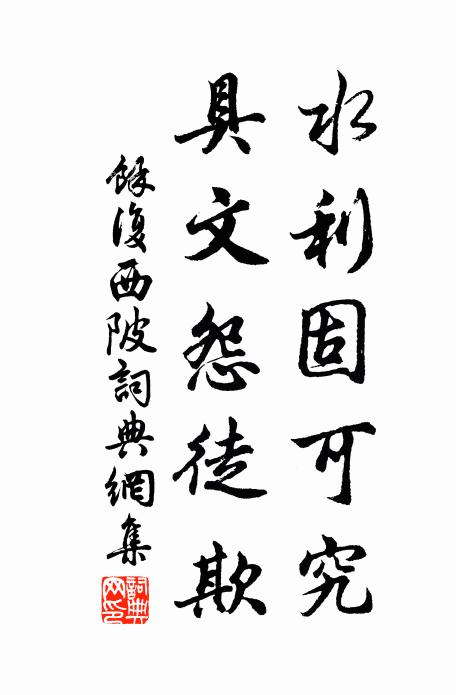 水利固可究
具文怨徒欺
餘復西陂詞典網集
詞典網印